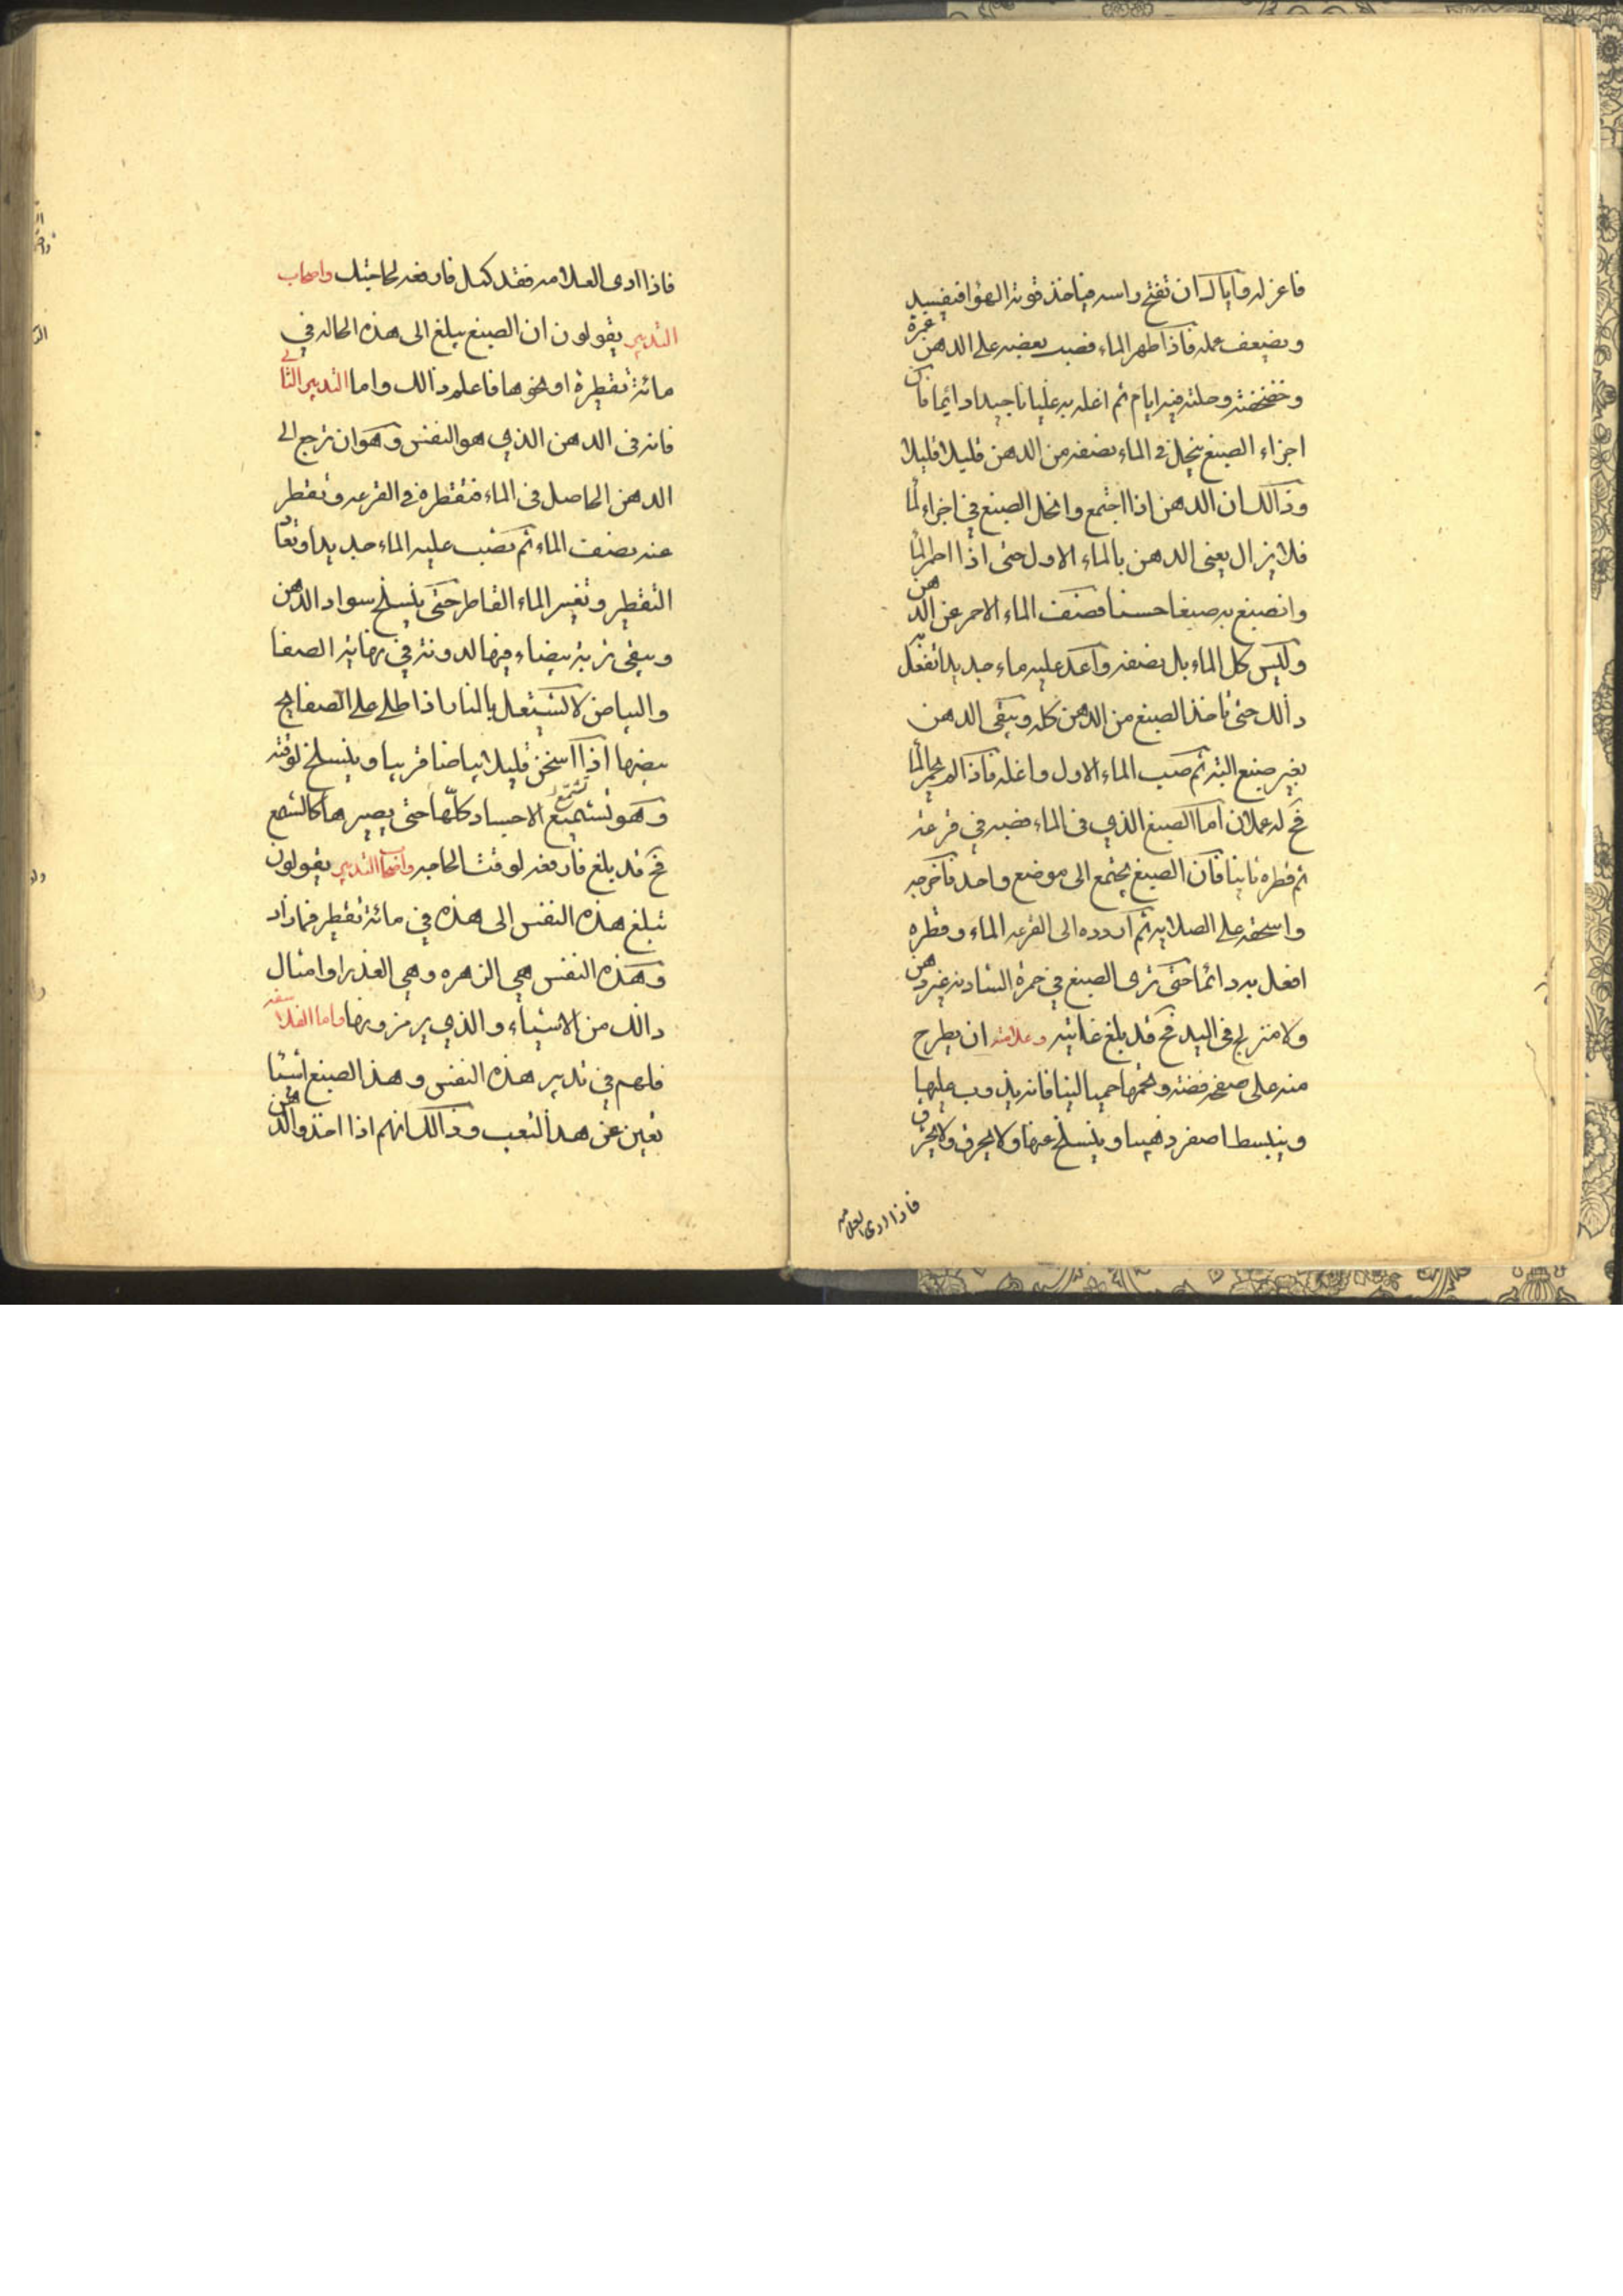 فاعزله واياك ان تفتح راسه فياخذ قوته الهوا فيفسيد
ويضعف عمله فاذا طهر الماء فصب بعضه على الدهن غمرة
وخضخضته وحلته فيه ايام ثم اغله به غليانا جيدا دائما فان
اجزاء الصبغ ينحل في الماء بضفه من الدهن قليلا قليلا
وذالك ان الدهن اذا اجتمع وانحل الصبغ في اجزاء لما
فلا يزال يعنى الدهن بالماء الاول حتى اذا احمر لما
وانصبغ به صبغا حسنا فصف الماء الاحمر عن الدهن
وليس كل الماء بل بضفه واعد عليه ماء جديدا تفعل به
ذالك حتى تاخذ الصبغ من الدهن كله ويبقى الدهن
بغير صبغ البته ثم صب الماء الاول واغله فاذا لم يحمر لما
فح له عملان اما الصبغ الذي في الماء فصبه في قرعه
ثم قطره ثانيا فان الصبغ يجتمع الى موضع واحد فاخرجه
واسحقه على الصلايه ثم اردده الى القرعه الماء وقطره
افعل به دائما حتى ترى الصبغ في حمرة الشادنه غير دهن
ولا متزلج في اليد فح قد بلغ غايته وعلامته ان يطرح
منه على صفحه فضه وتحمها حميا لينا فانه يذوب عليها
وينبسط اصفر ذهبيا وينسلخ عنها ولا يحرق ولا يحترق
فاذا ادى العلامه
فاذا ادى العلامه فقد كمل فارفعه لحاجتك واصحاب
التدبير يقولون ان الصبغ يبلغ الى هذه الحاله في
مائة تقطيرة او نحوها فاعلم ذالك واما التدبير الثاني
فانه في الدهن الذي هو النفس وهو ان ترجع الى
الدهن الحاصل في الماء فتقطره في القرعه وتقطر
عنه بضف الماء ثم تصب عليه الماء جديدا وتعاد
التقطير وتغيير الماء القاطر حتى ينسلخ سواد الدهن
ويبقى تربة بيضاء فيها لدونة في نهاية الصفا
والبياض لا تشتعل بالنار اذا طلى على الصفايح
بيضها اذا اسخن قليلا بياضا قريبا وينسلخ لوقته
وهو تستميع تشمع الاجساد كلها حتى يصيرها كالشمع
فح قد بلغ فارفعه لوقت الحاجه واصحاب التدبير يقولون
تبلغ هذه النفس الى هذه في مائة تقطير فمازاد
وهذه النفس هي الزهره وهي العذرا وامثال
ذالك من الاشياء والذي يرمزونها واما الفلاسفه
فلهم في تدبير هذه النفس وهذا الصبغ اشيا
تعين عن هذا التعب وذالك انهم اذا اخذوا الدهن